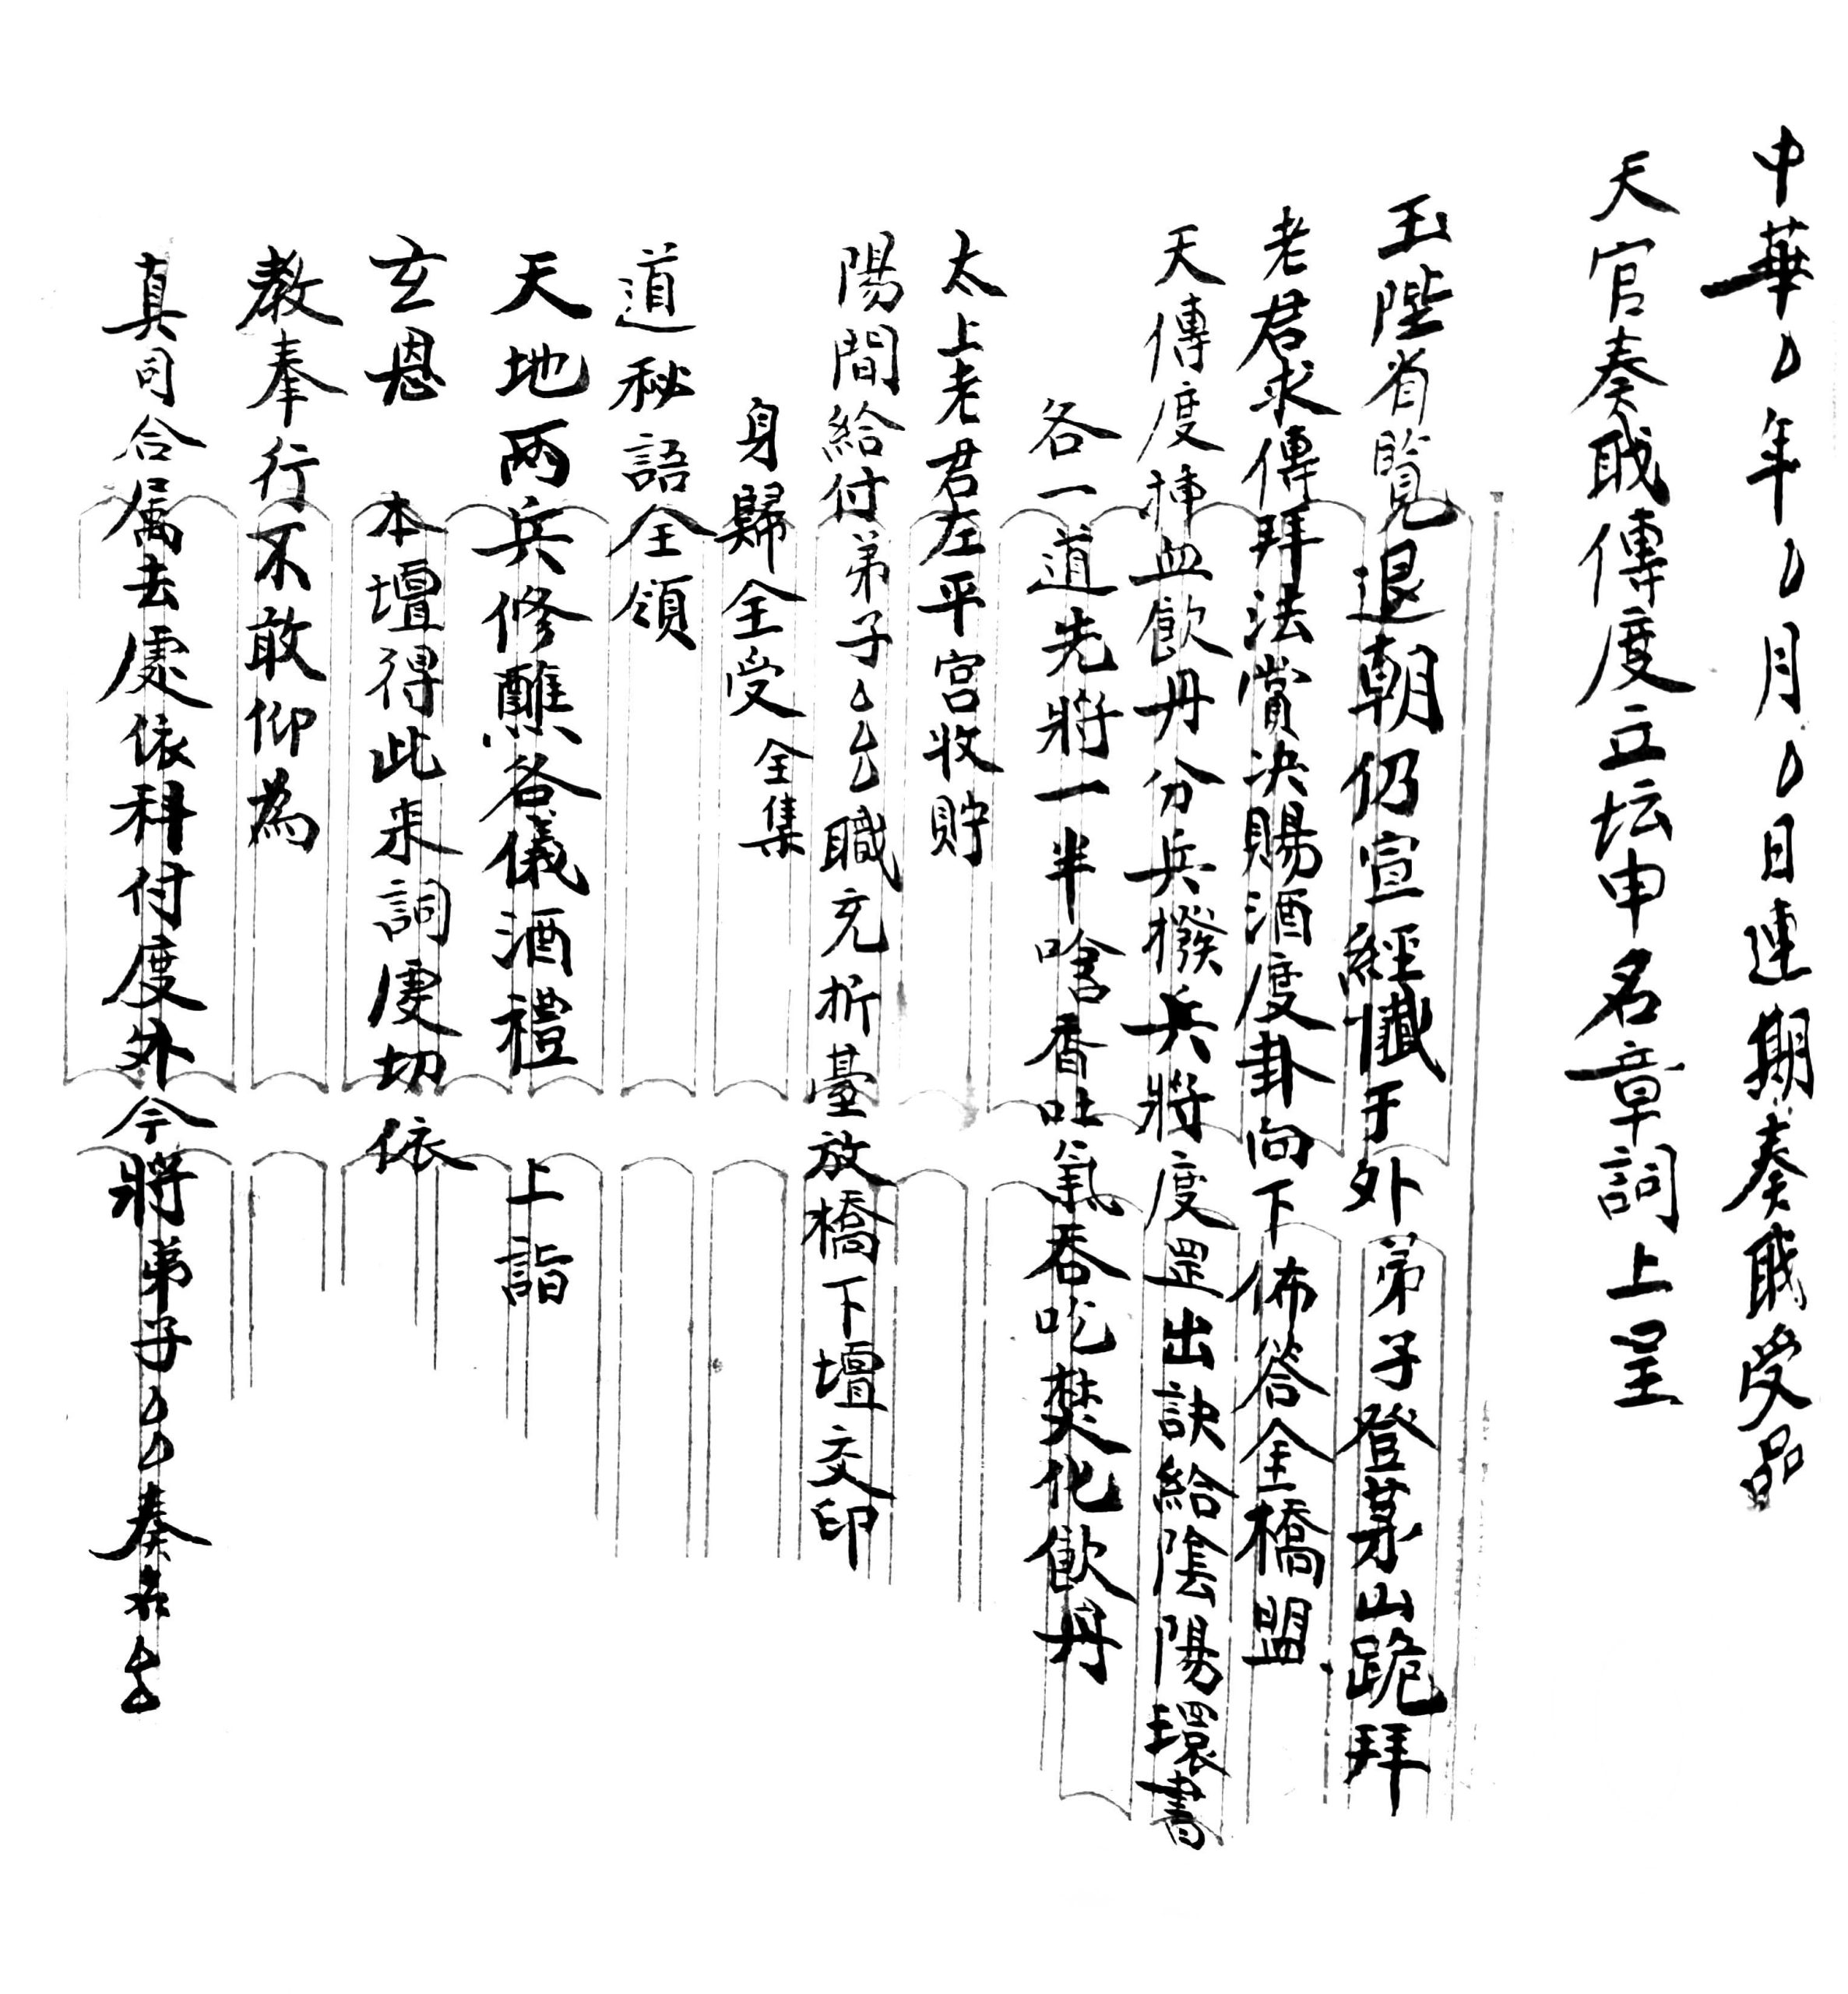 中華年月日連期奏戝受品
天官奏戝傳度立坛申名章詞上呈
玉陛省覧退朝仍宣經懺于外弟子登茅山跪拜
老君求傳拜法賞决賜酒度卦向下佈答金橋盟
天傳度揷血飲丹分兵撥兵將度罡出訣給陰陽環書
各一道先將一半唅香吐氣吞吃焚化飲丹
太上老君左平宮收貯
陽間給付弟子厶厶職充折臺放橋下壇交印
身歸全受全集
道秘語全領
天地两兵修醮各儀酒禮上詣
玄恩本壇得此来詞虔切依
教奉行不敢仰為
真司合属去處依科付度外今將弟子奏